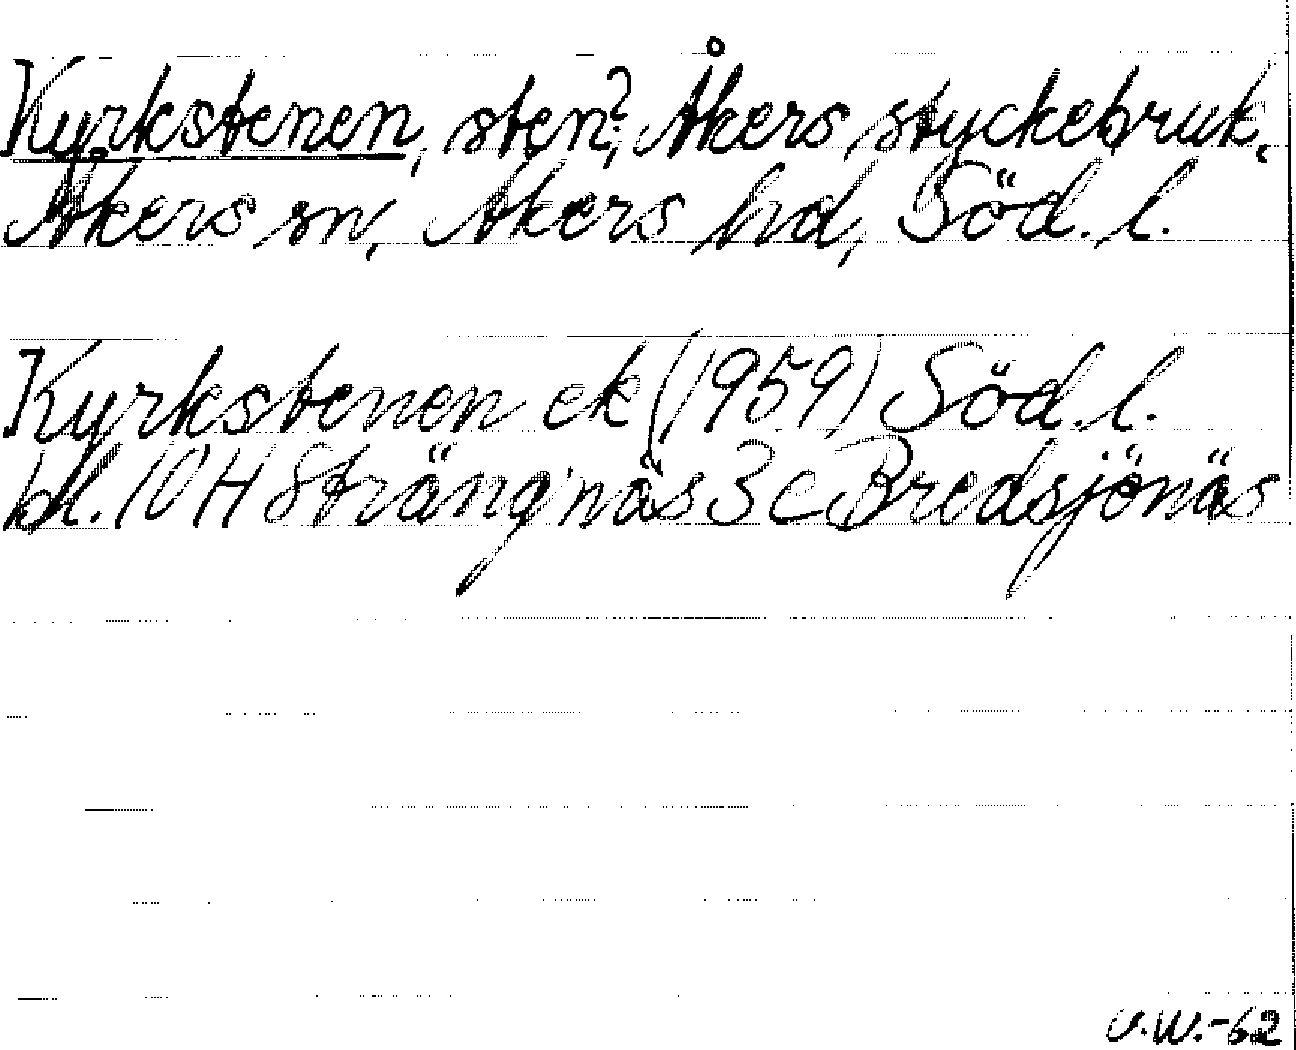 Kyrkstenen, sten?, Åkers styckebruk,
Åkers sn, Åkers hd, Söd. l.
Kyrkstenen ek (1959) Söd. l.
bl. 10 H Strängnäs 3 c Bredsjönäs
U.W.-62